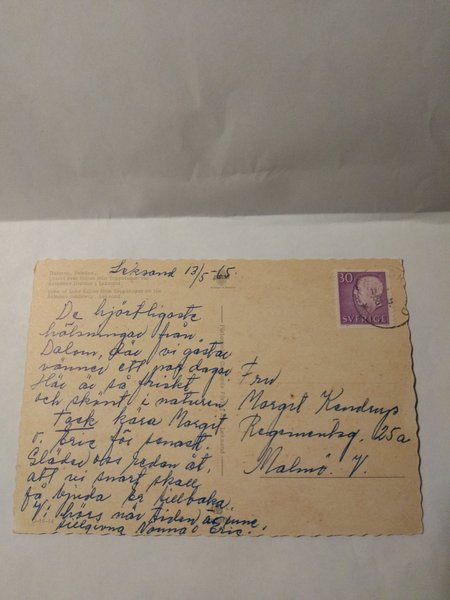 Leksand 13/5-65
Dalarna, Sweden.
30
SVERIGE
De hjärtligaste
hälsningar från
Dalom, där vi gästar
vänner ett par dagar
Här är så friskt
och skönt i naturen
Tack kära Margit
o. Eric för senast.
Gläder oss redan åt
att vi snart skall
få bjuda er tillbaka.
Vi hörs när tiden är inne
tillgivna Nanna o Eric.
Fru
Margit Kendrup
Regementsg. 25a
Malmö. V.